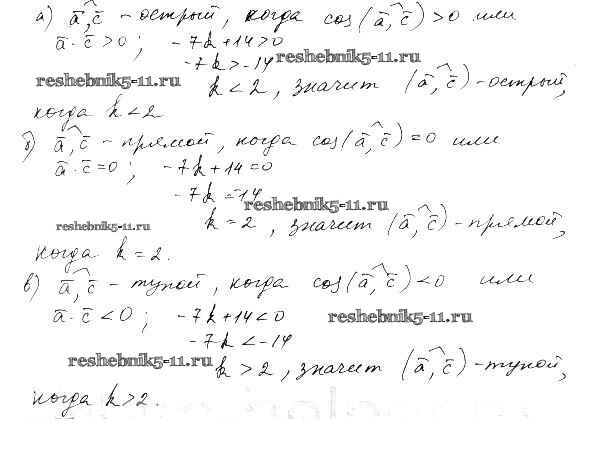 а) a̅,c̅ – острый, когда cos(a̅, c̅) > 0 или
a̅·c̅ > 0; -7k+14>0
-7k > -14 reshebnik5-11.ru
reshebnik5-11.ru k < 2, значит (a̅, c̅) – острый,
когда k < 2
б) a̅, c̅ – прямой, когда cos(a̅, c̅) = 0 или
a̅·c̅ = 0; -7k+14=0
-7k = -14
reshebnik5-11.ru
reshebnik5-11.ru k = 2, значит (a̅, c̅) – прямой,
когда k = 2.
в) a̅, c̅ – тупой, когда cos(a̅, c̅) < 0 или
a̅·c̅ < 0; -7k+14<0 reshebnik5-11.ru
-7k < -14
reshebnik5-11.ru k > 2, значит (a̅, c̅) – тупой,
когда k > 2.